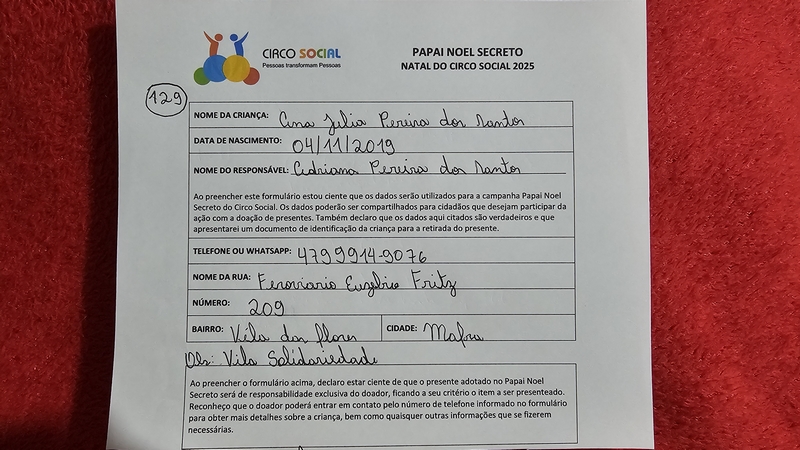 CIRCO SOCIAL
Pessoas transformam Pessoas
PAPAI NOEL SECRETO
NATAL DO CIRCO SOCIAL 2025
129
NOME DA CRIANÇA: Ana Julia Pereira dos Santos
DATA DE NASCIMENTO: 04/11/2019
NOME DO RESPONSÁVEL: Adriana Pereira dos Santos
Ao preencher este formulário estou ciente que os dados serão utilizados para a campanha Papai Noel
Secreto do Circo Social. Os dados poderão ser compartilhados para cidadãos que desejam participar da
ação com a doação de presentes. Também declaro que os dados aqui citados são verdadeiros e que
apresentarei um documento de identificação da criança para a retirada do presente.
TELEFONE OU WHATSAPP: 4799914-9076
NOME DA RUA: Ferroviario Euzebio Fritz
NÚMERO: 209
BAIRRO: Vila das flores CIDADE: Mafra
Obs: Vila Solidariedade
Ao preencher o formulário acima, declaro estar ciente de que o presente adotado no Papai Noel
Secreto será de responsabilidade exclusiva do doador, ficando a seu critério o item a ser presenteado.
Reconheço que o doador poderá entrar em contato pelo número de telefone informado no formulário
para obter mais detalhes sobre a criança, bem como quaisquer outras informações que se fizerem
necessárias.